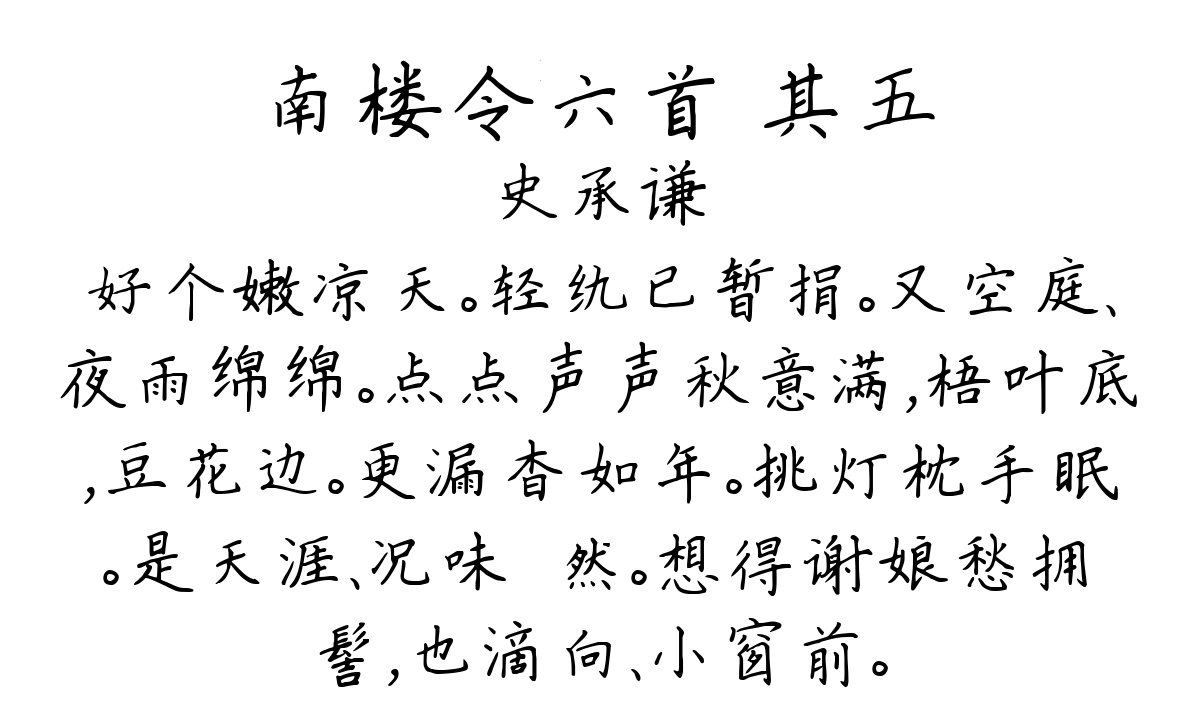 南楼令六首 其五
史承谦
好个嫩凉天。轻纨已暂捐。又空庭、
夜雨绵绵。点点声声秋意满,梧叶底
,豆花边。更漏杳如年。挑灯枕手眠
。是天涯、况味 然。想得谢娘愁拥
髻,也滴向、小窗前。